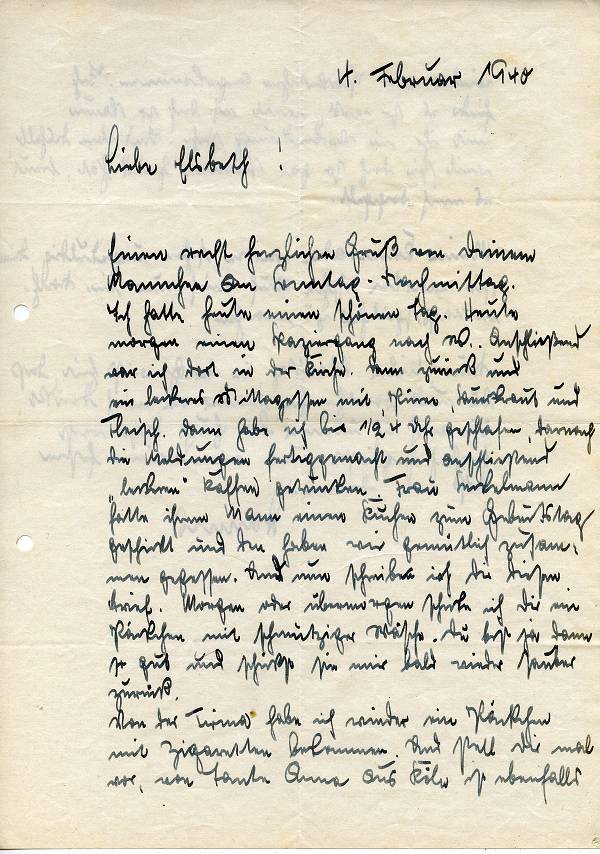 4. Februar 1940
Liebe Elsbeth!
Einen recht herzlichen Gruß von Deinem
Mannchen am Sonntag-Nachmittag.
Ich hatte heute einen schönen Tag. Heute
morgen einen Spaziergang nach W.. Anschließend
war ich dort in der Kirche. Dann zurück und
ein leckeres Mittagessen mit Püree, Sauerkraut und
Fleisch. Dann habe ich bis 1/2 4 Uhr geschlafen, darnach
die Meldungen fertiggemacht und anschließend
"leckeren" Kaffee getrunken. Frau
hatte ihrem Mann einen Kuchen zum Geburtstag
geschickt und den haben wir gemütlich zusam-
men gegessen. Und nun schreibe ich dir diesen
Brief. Morgen oder übermorgen schicke ich dir ein
Päckchen mit schmutziger Wäsche. Du bist ja dann
so gut und schickst sie mir bald wieder sauber
zurück.
Von der Firma habe ich wieder ein Päckchen
mit Zigaretten bekommen. Und stell dir mal
vor, von Tante Anna aus Köln ist ebenfalls